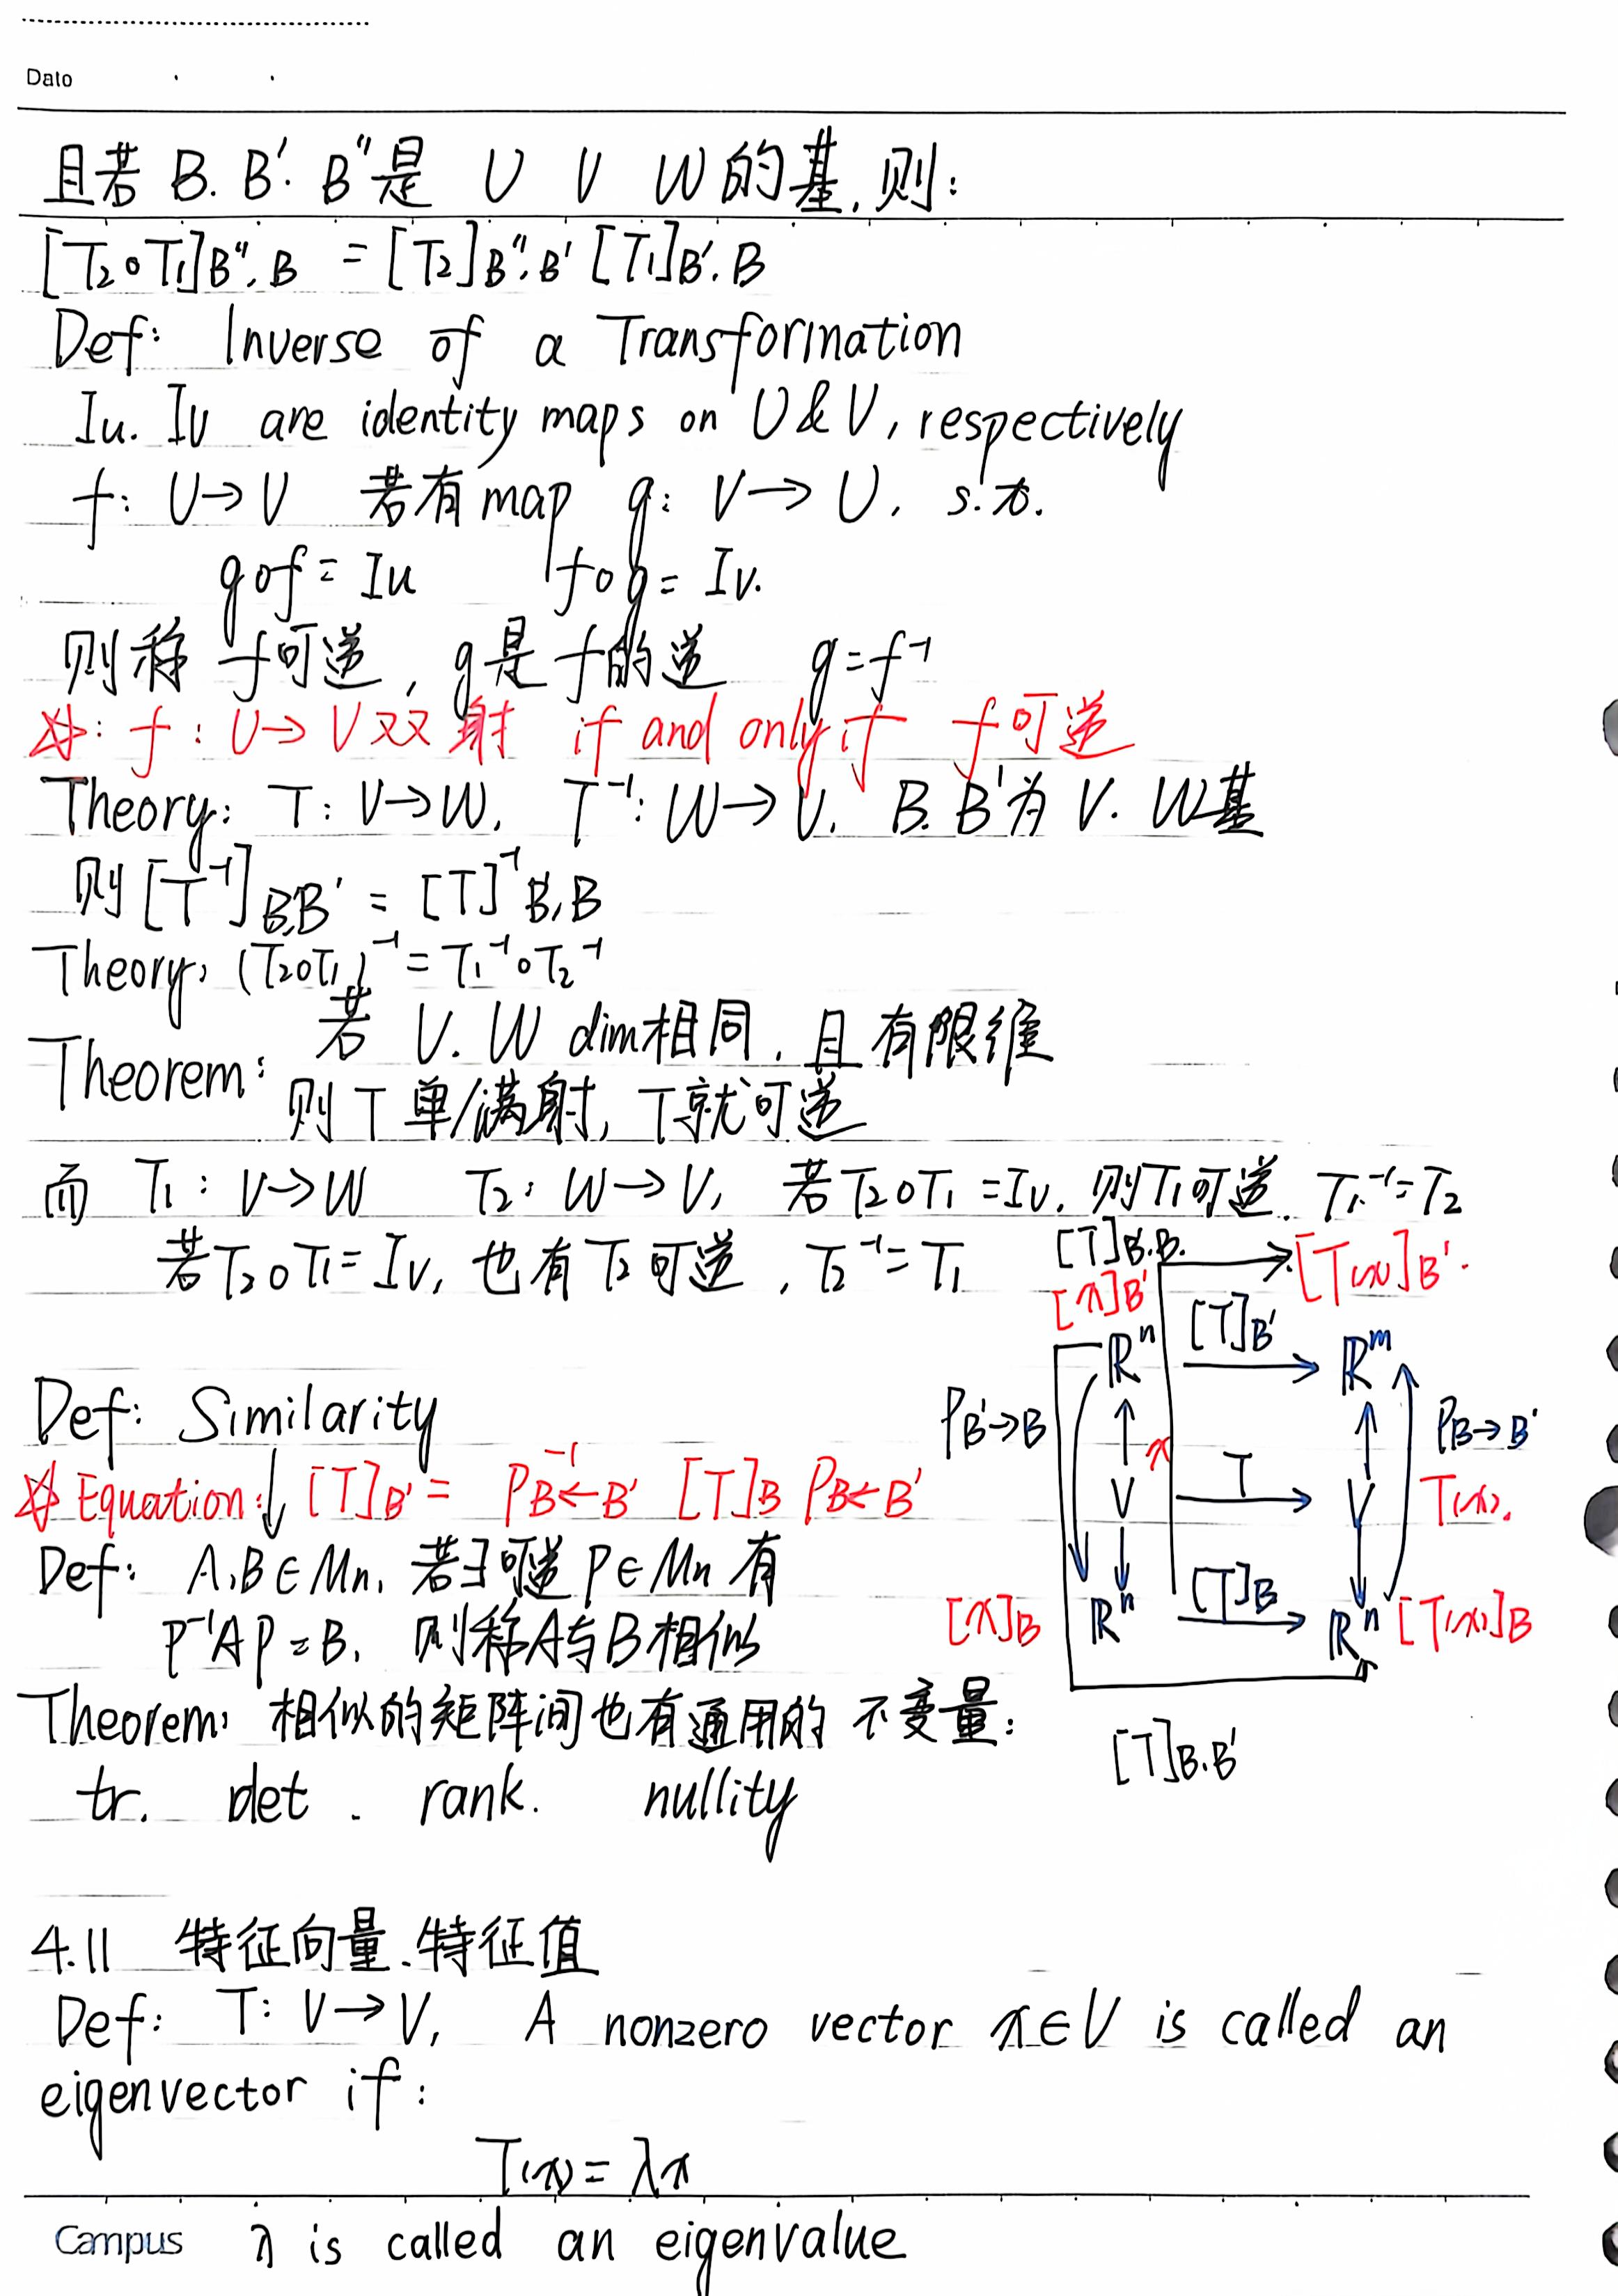 Date
且若 B. B'. B"是 U V W的基, 则:
[T₂∘T₁]B",B = [T₂]B",B' [T₁]B',B
Def: Inverse of a Transformation
Iu. Iv are identity maps on U&V, respectively
f: U→V 若有map g: V→U, s.t.
g∘f = Iu f∘g = Iv.
则称 f可逆, g是f的逆 g=f⁻¹
☆: f: U→V 双射 if and only if f可逆
Theory: T: V→W, T⁻¹: W→V, B. B'为 V. W基
则[T⁻¹]B,B' = [T]⁻¹B',B
Theory: (T₂∘T₁)⁻¹ = T₁⁻¹∘T₂⁻¹
Theorem: 若 V. W dim相同, 且有限维
则T单/满射, T就可逆
而 T₁: V→W T₂: W→V, 若T₂∘T₁=Iv, 则T₁可逆. T₁⁻¹=T₂
若T₂∘T₁=Iv, 也有T₂可逆, T₂⁻¹=T₁
[T]B'.B. → [T(x)]B'.
[x]B'
Rⁿ [T]B' → Rᵐ
PB'→B PB→B'
x
V T → V T(x).
[x]B Rⁿ [T]B → Rⁿ [T(x)]B
[T]B.B'
Def: Similarity
☆ Equation:↓ [T]B' = P⁻¹B←B' [T]B PB←B'
Def: A,B∈Mn, 若∃可逆P∈Mn有
P⁻¹AP=B, 则称A与B相似
Theorem: 相似的矩阵间也有通用的 不变量:
tr. det. rank. nullity
4.11 特征向量、特征值
Def: T: V→V, A nonzero vector x∈V is called an
eigenvector if:
T(x) = λx
Campus λ is called an eigenvalue